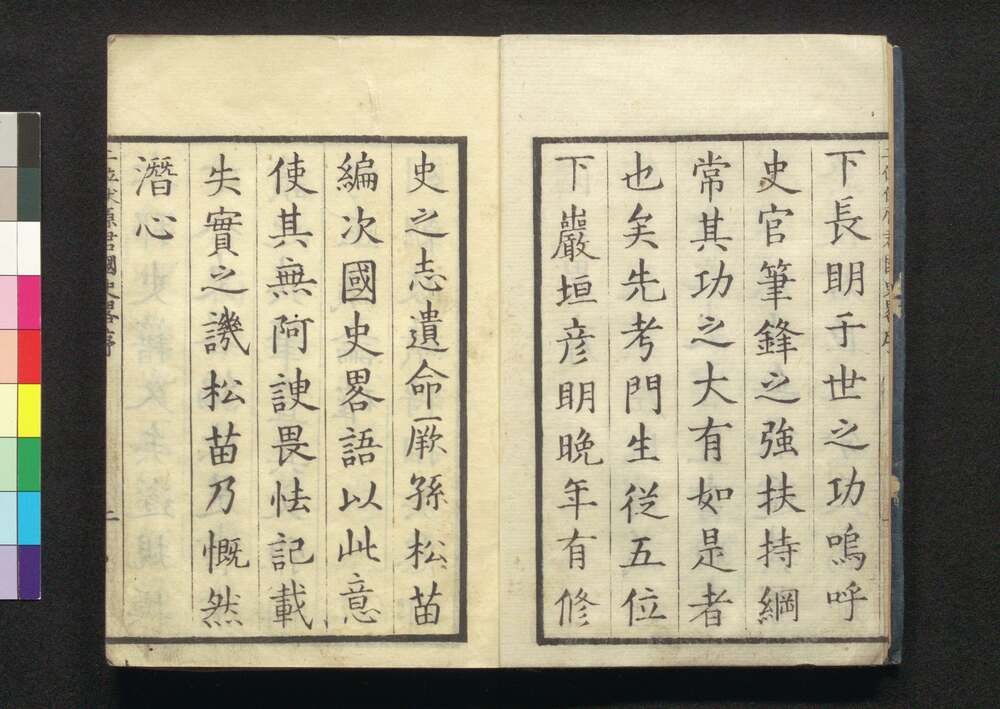 下長明于世之功嗚呼
史官筆鋒之強扶持綱
常其功之大有如是者
也矣先考門生從五位
下巖垣彦明晩年有修
史之志遺命厥孫松苗
編次國史畧語以此意
使其無阿諛畏怯記載
失實之譏松苗乃慨然
潛心
國史畧序